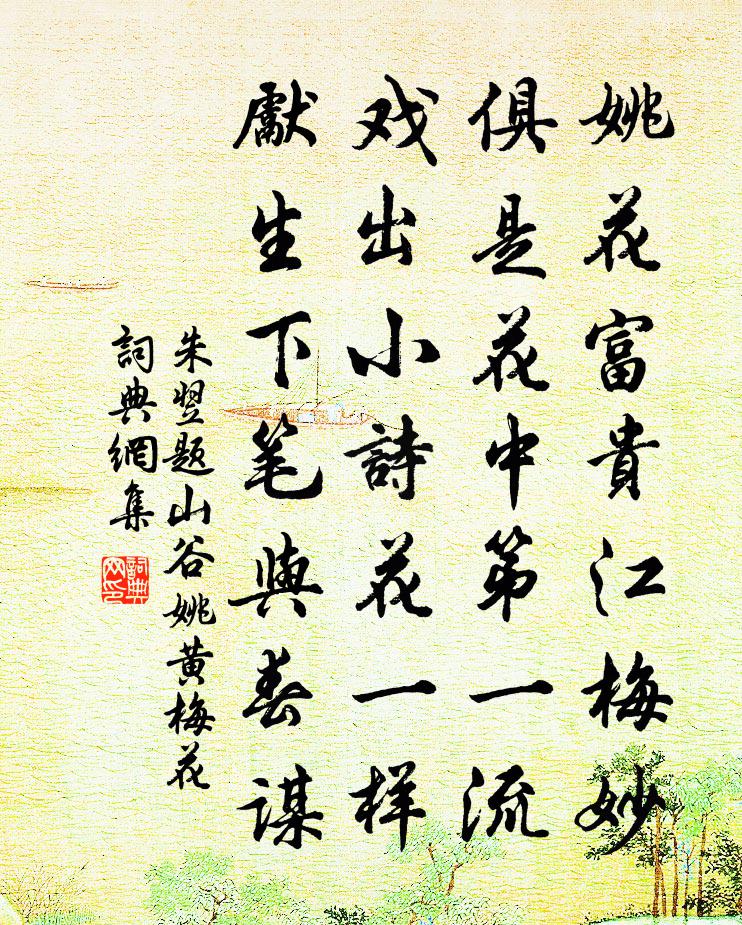 姚花富貴江梅妙
俱是花中第一流
戏出小詩花一样
獻生下笔與春謀
朱翌题山谷姚黄梅花
詞典網集
詞典网印